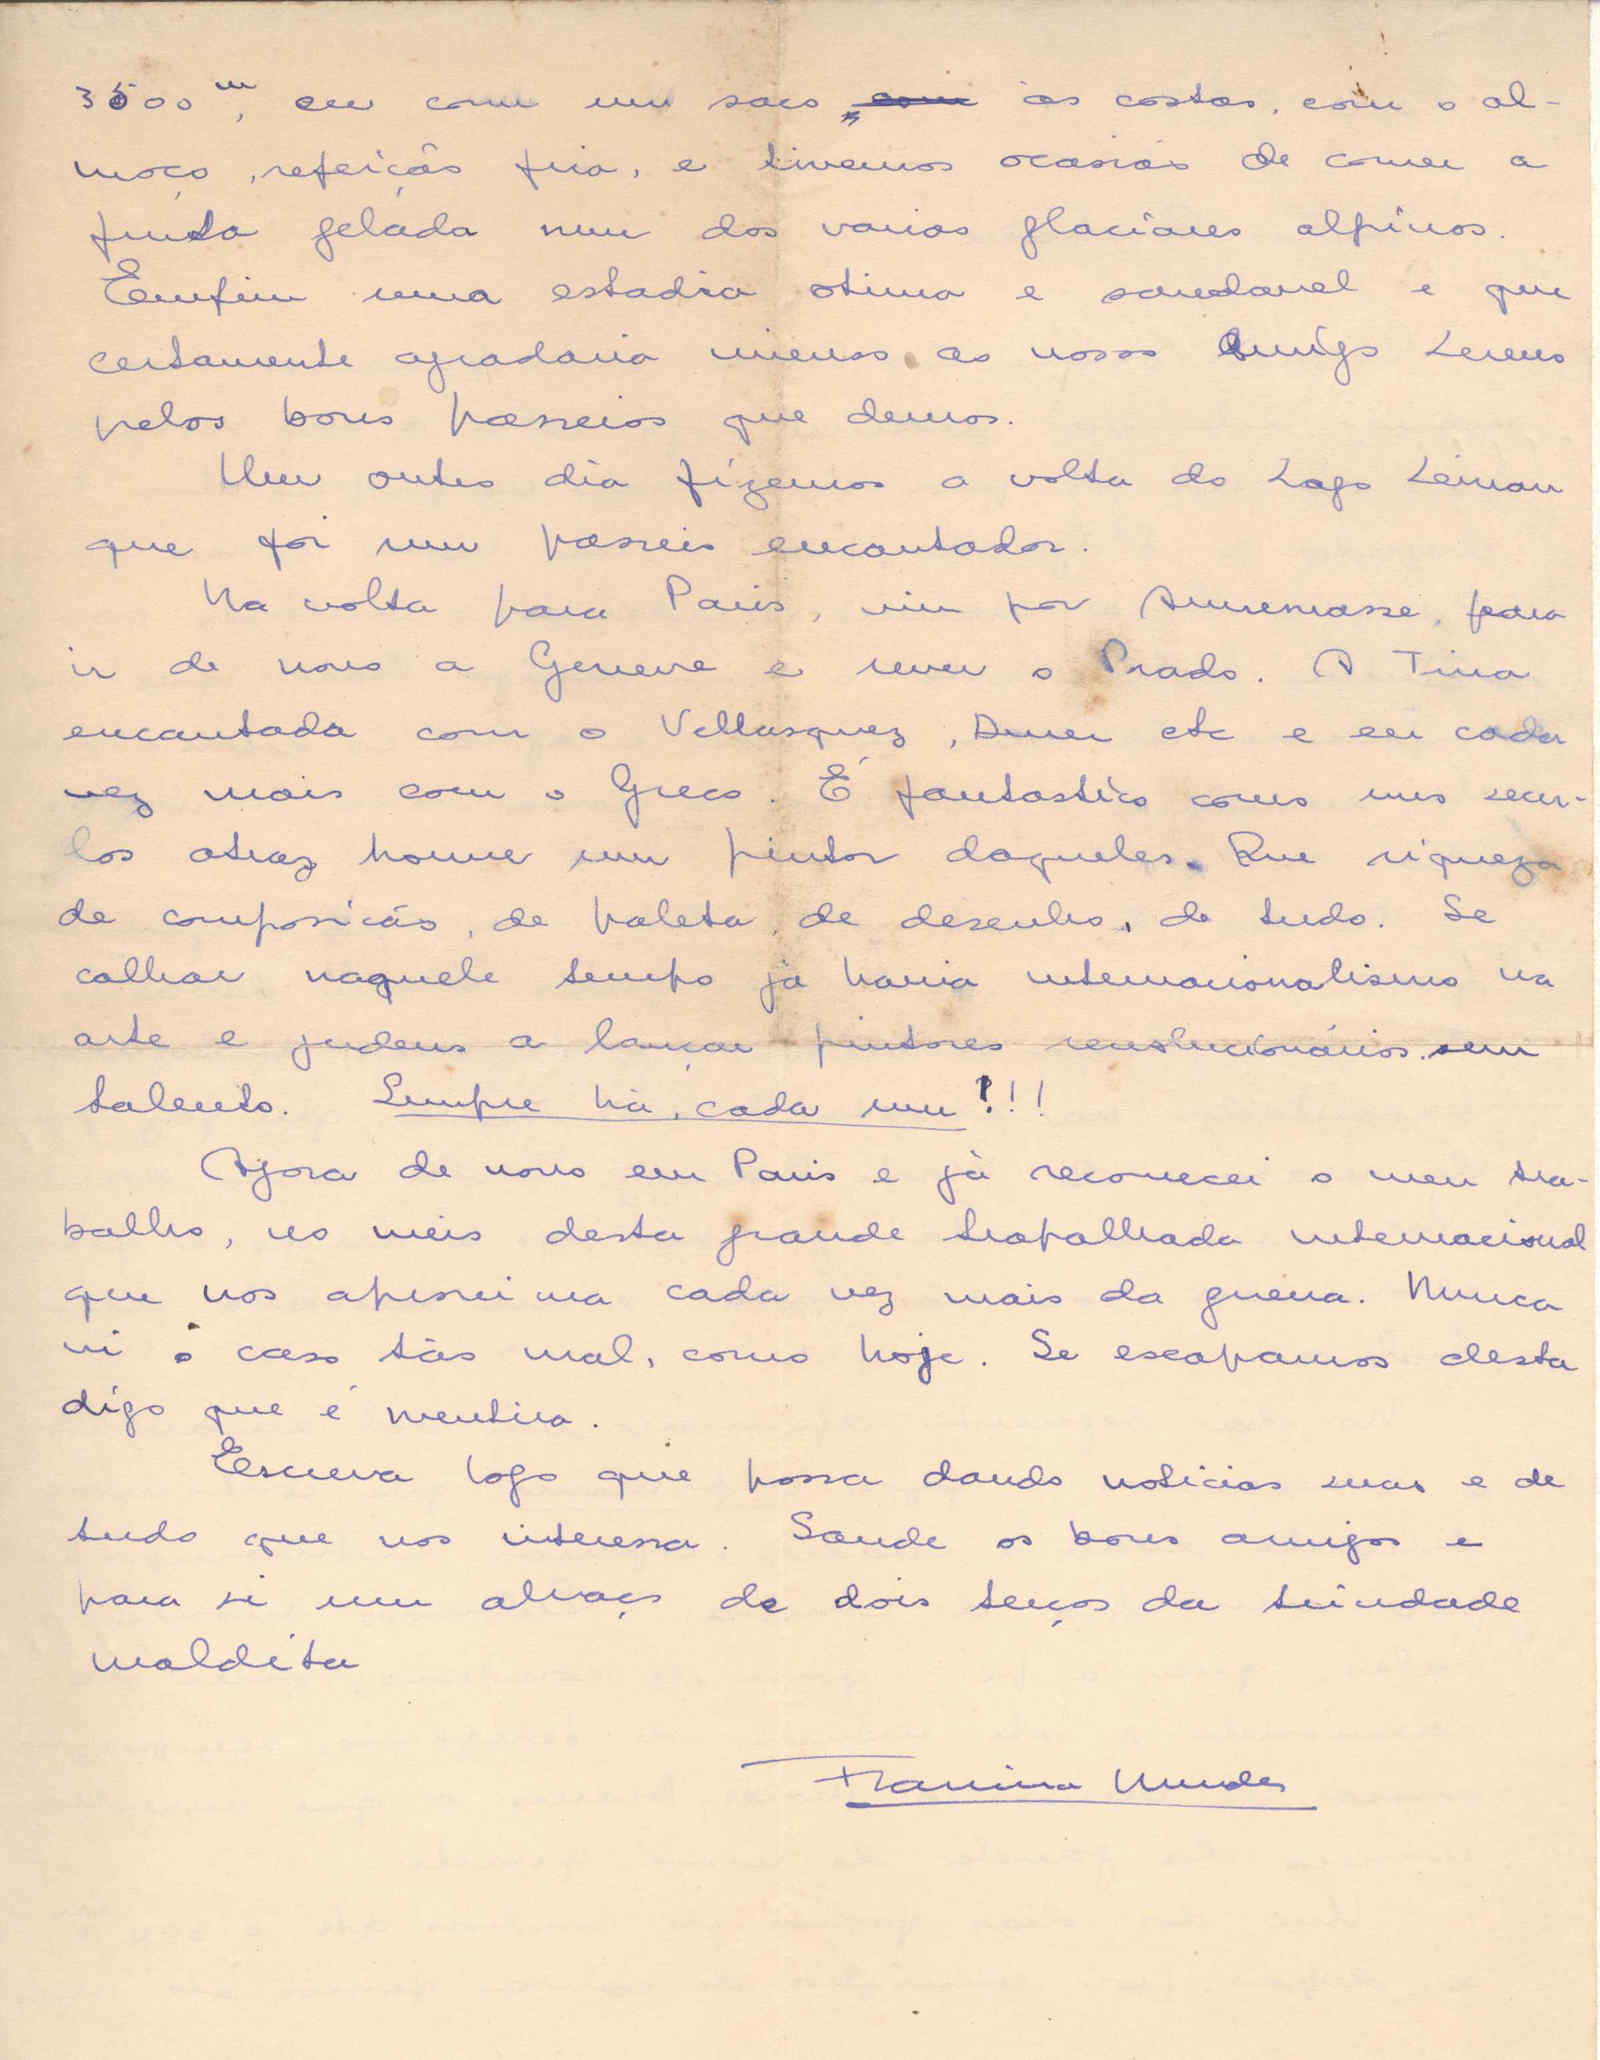 3500m, eu com um saco, com ás costas, com o al-
moço, refeição fria, e tivemos ocasião de comer a
fruta gelada num dos varios glaciares alpinos.
Emfim uma estadia otima e saudavel e que
certamente agradaria imenso ao nosso amigo
pelos bons passeios que demos.
Um outro dia fizemos a volta do Lago Léman
que foi um passeio encantador.
Na volta para Paris, vim por Annemasse, para
ir de novo a Geneve e rever o Prado. A Tina
encantada com o Vellasquez, Durer etc e eu cada
vez mais com o Greco. É fantastico como uns secu-
los atraz houve um pintor daqueles. Que riqueza
de composicão, de paleta, de desenho, de tudo. Se
calhar naquele tempo já havia internacionalismo na
arte e judeus a lançar pintores revolucionários sem
talento. Sempre há, cada um!!!
Agora de novo em Paris e já recomecei o meu tra-
balho, no meio desta grande trapalhada internacional
que nos aproxima cada vez mais da guerra. Nunca
vi o caso tão mal, como hoje. Se escapamos desta
digo que é mentira.
Escreva logo que possa dando noticias suas e de
tudo que nos interessa. Saude os bons amigos e
para si um abraço de dois terços da trindade
maldita
Mendes